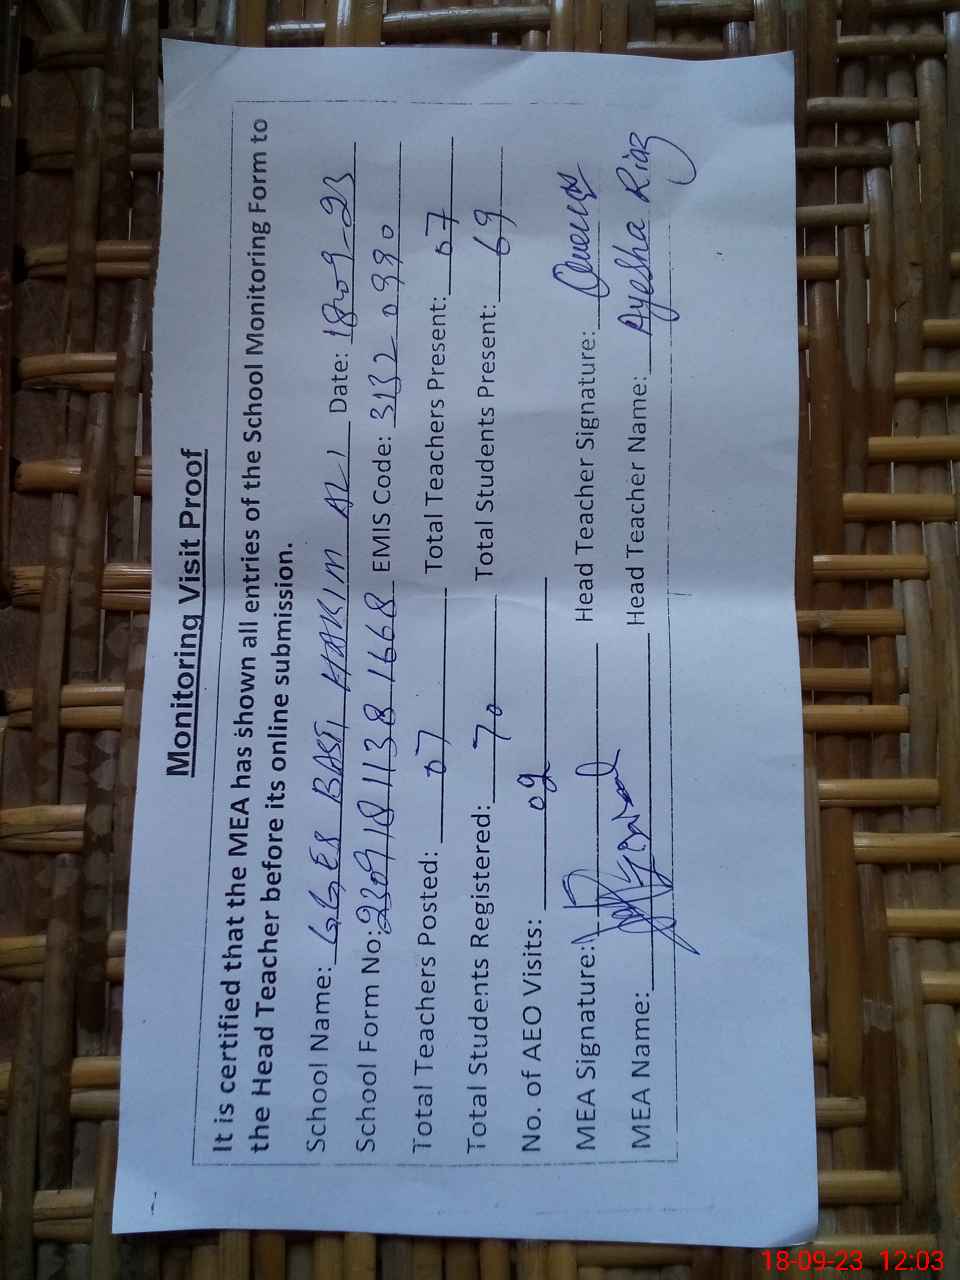 Monitoring Visit Proof
It is certified that the MEA has shown all entries of the School Monitoring Form to
the Head Teacher before its online submission.
School Name: GGES BASTI HAKIM ALI Date: 18-09-23
School Form No: 2309181138 1668 EMIS Code: 3132 0990
Total Teachers Posted: 07 Total Teachers Present: 07
Total Students Registered: 70 Total Students Present: 69
No. of AEO Visits: 02
MEA Signature: Head Teacher Signature:
MEA Name: Head Teacher Name: Ayesha Riaz
18-09-23 12:03